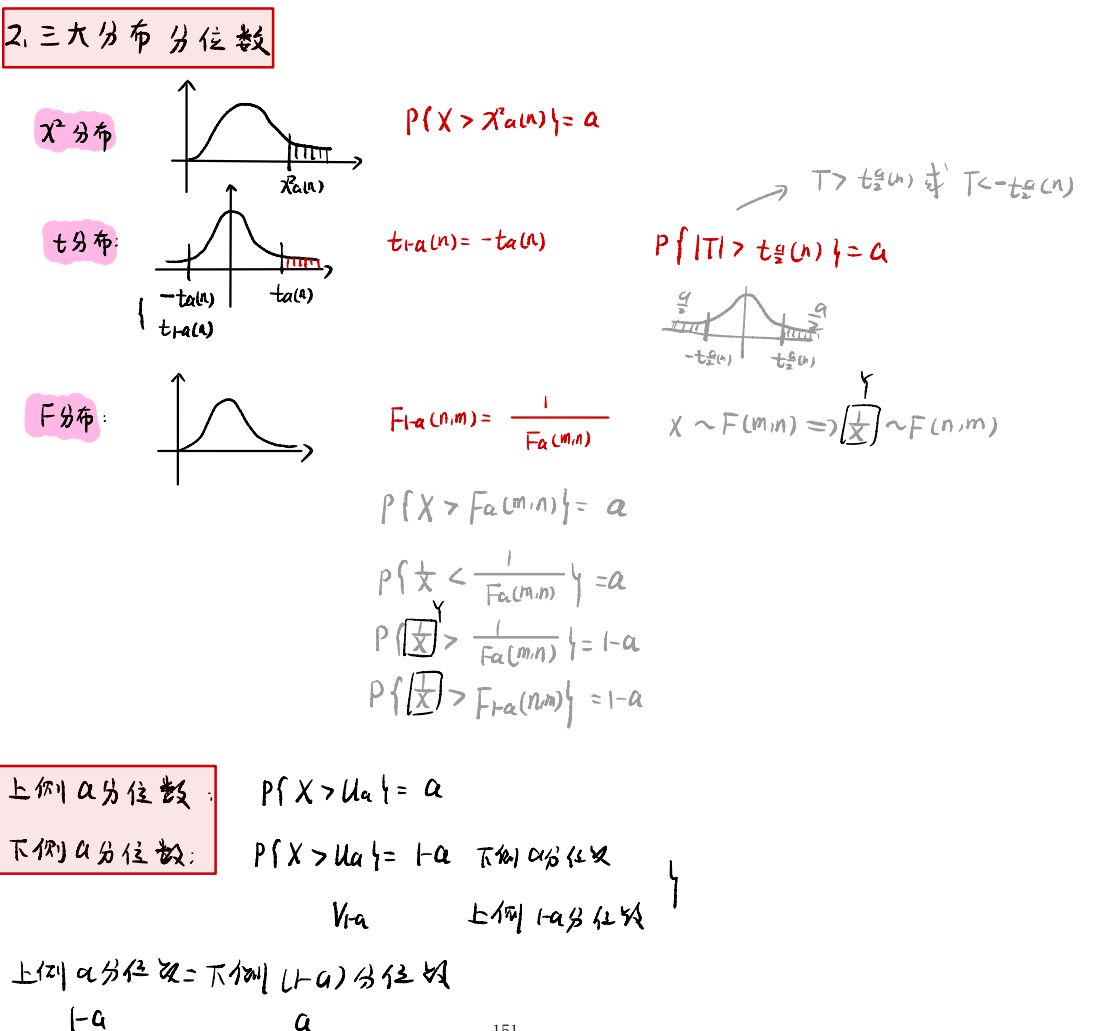 2、三大分布 分位数
χ²分布
χ²a(n)
P{X > χ²a(n)} = a
t分布:
-ta(n)
t1-a(n)
ta(n)
t1-a(n) = -ta(n)
T > t a/2 (n) 或 T < -t a/2 (n)
P{|T| > t a/2 (n)} = a
a/2
a/2
-t a/2 (n)
t a/2 (n)
F分布:
F1-a(n,m) = 1/Fa(m,n)
Y
X ~ F(m,n) => 1/X ~ F(n,m)
P{X > Fa(m,n)} = a
P{1/X < 1/Fa(m,n)} = a
Y
P{1/X > 1/Fa(m,n)} = 1-a
P{1/X > F1-a(n,m)} = 1-a
上侧a分位数: P{X > Ua} = a
下侧a分位数: P{X > Ua} = 1-a 下侧a分位数
V1-a 上侧1-a分位数
上侧a分位数 = 下侧(1-a)分位数
1-a a
151